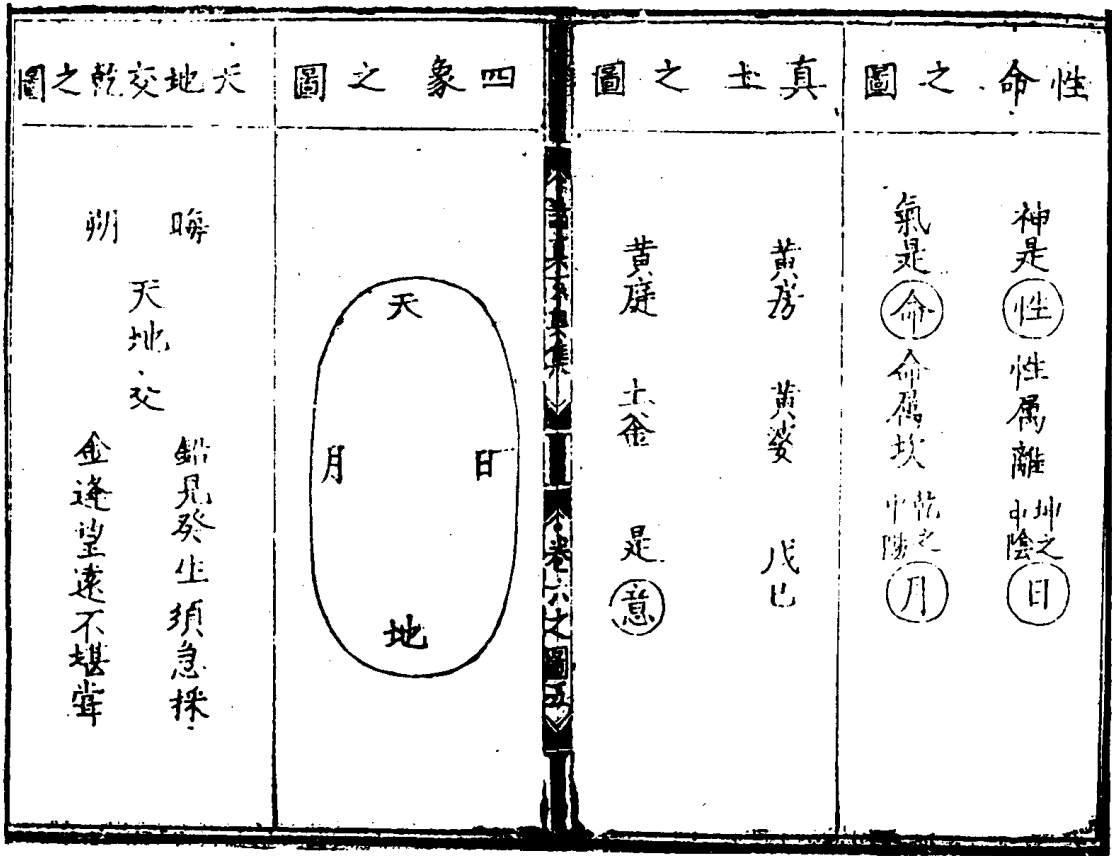 性命之圖
神是性性属離坤之中陰日
氣是命命属坎乾之中陽月
真土之圖
黄房 黄婆 戊己
黄庭 土釜 是意
卷六之圖五
四象之圖
天
日
月
地
天地交乾之圖
晦
朔
天地交
鉛見癸生須急採
金逢望遠不堪甞